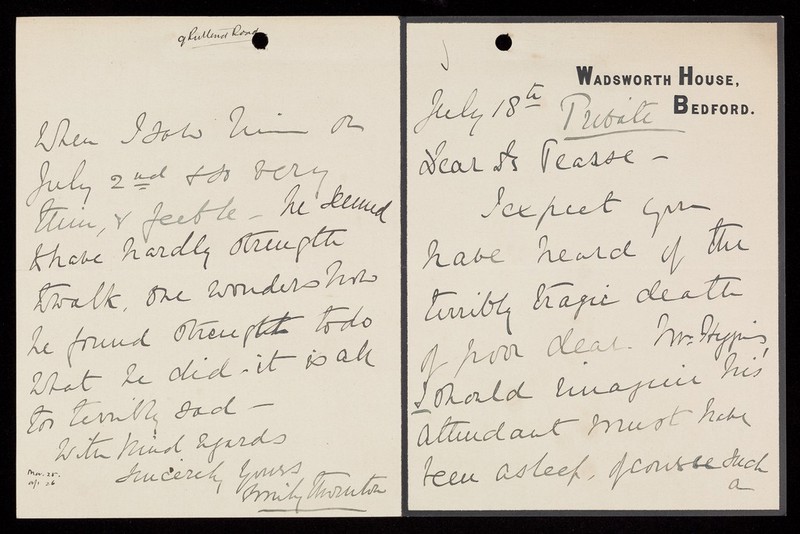 WADSWORTH HOUSE,
BEDFORD.
July 18th
Private
Dear Dr
I expect you
have heard of the
terribly tragic death
of poor dear Mr
I should imagine his
attendant must have
been asleep, of course such
a
9 Road
When I saw him on
July 2nd so very
thin, & feeble - he seemed
to have hardly strength
to walk, one wonders how
he found strength to do
what he did - it is all
too terribly sad -
With kind regards
Sincerely Yours
Emily Thornton